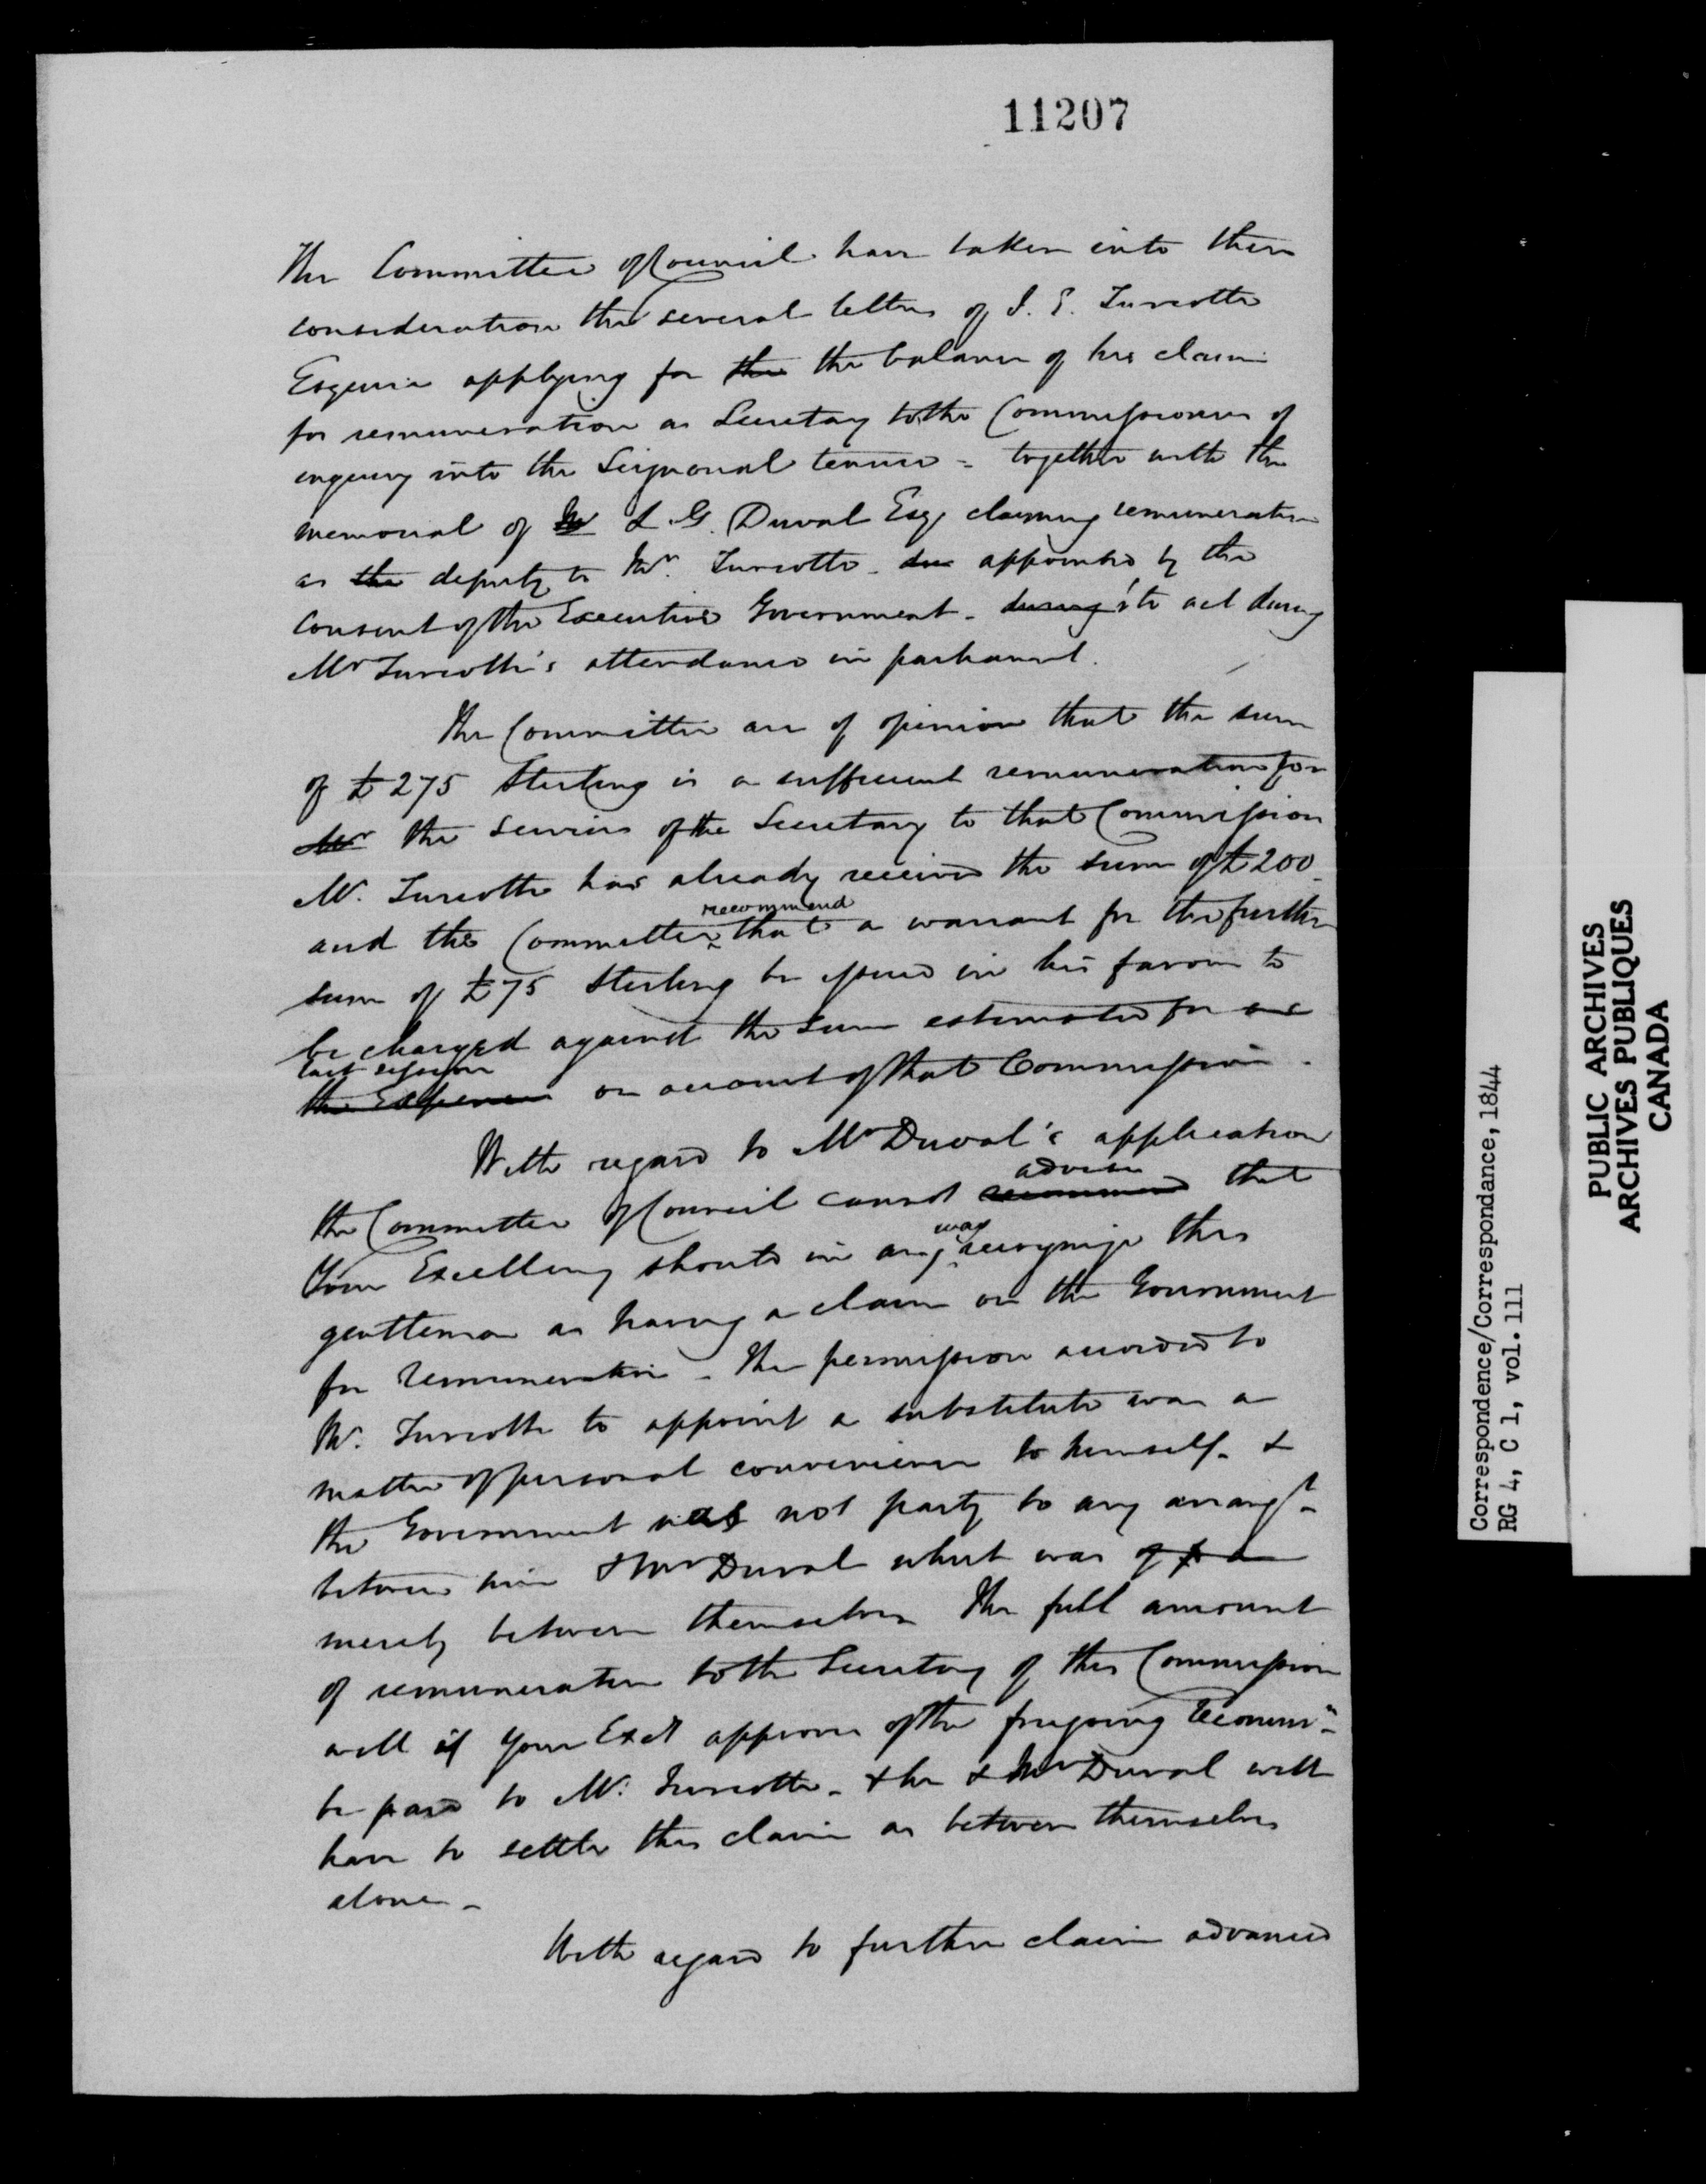 11207
The Committee of Council have taken into their
consideration the several letters of J. E. Turcotte
Esquire applying for the the balance of his claim
for remuneration as Secretary to the Commissioners of
enquiry into the Seignorial tenure - together with the
memorial of Mr L. G. Duval Esq claiming remuneration
as the deputy to Mr. Turcotte - due appointed by the
consent of the Executive Government - during to act during
Mr Turcotte's attendance in parliament.
The Committee are of opinion that the sum
of £275 Sterling is a sufficient remuneration for
Mr the services of the Secretary to that Commission
Mr. Turcotte has already received the sum of £200
and the Committee recommend that a warrant for the further
sum of £75 Sterling be issued in his favour to
be charged against the sum estimated for
last session
the Expenses on account of that Commission.
With regard to Mr Duval's application
the Committee of Council cannot recommend advise that
Your Excellency should in any way recognize this
gentleman as having a claim on the Government
for remuneration - The permission accorded to
Mr. Turcotte to appoint a substitute was a
matter of personal convenience to himself - &
the Government was not party to any arrangt
between him & Mr Duval what was of
merely between themselves The full amount
of remuneration to the Secretary of this Commission
will if Your Excy approves of the foregoing recommn
be paid to Mr. Turcotte - & he & Mr Duval will
have to settle this claim as between themselves
alone -
With regard to further claim advanced
Correspondence/Correspondance, 1844
RG 4, C 1, vol. 111
PUBLIC ARCHIVES
ARCHIVES PUBLIQUES
CANADA